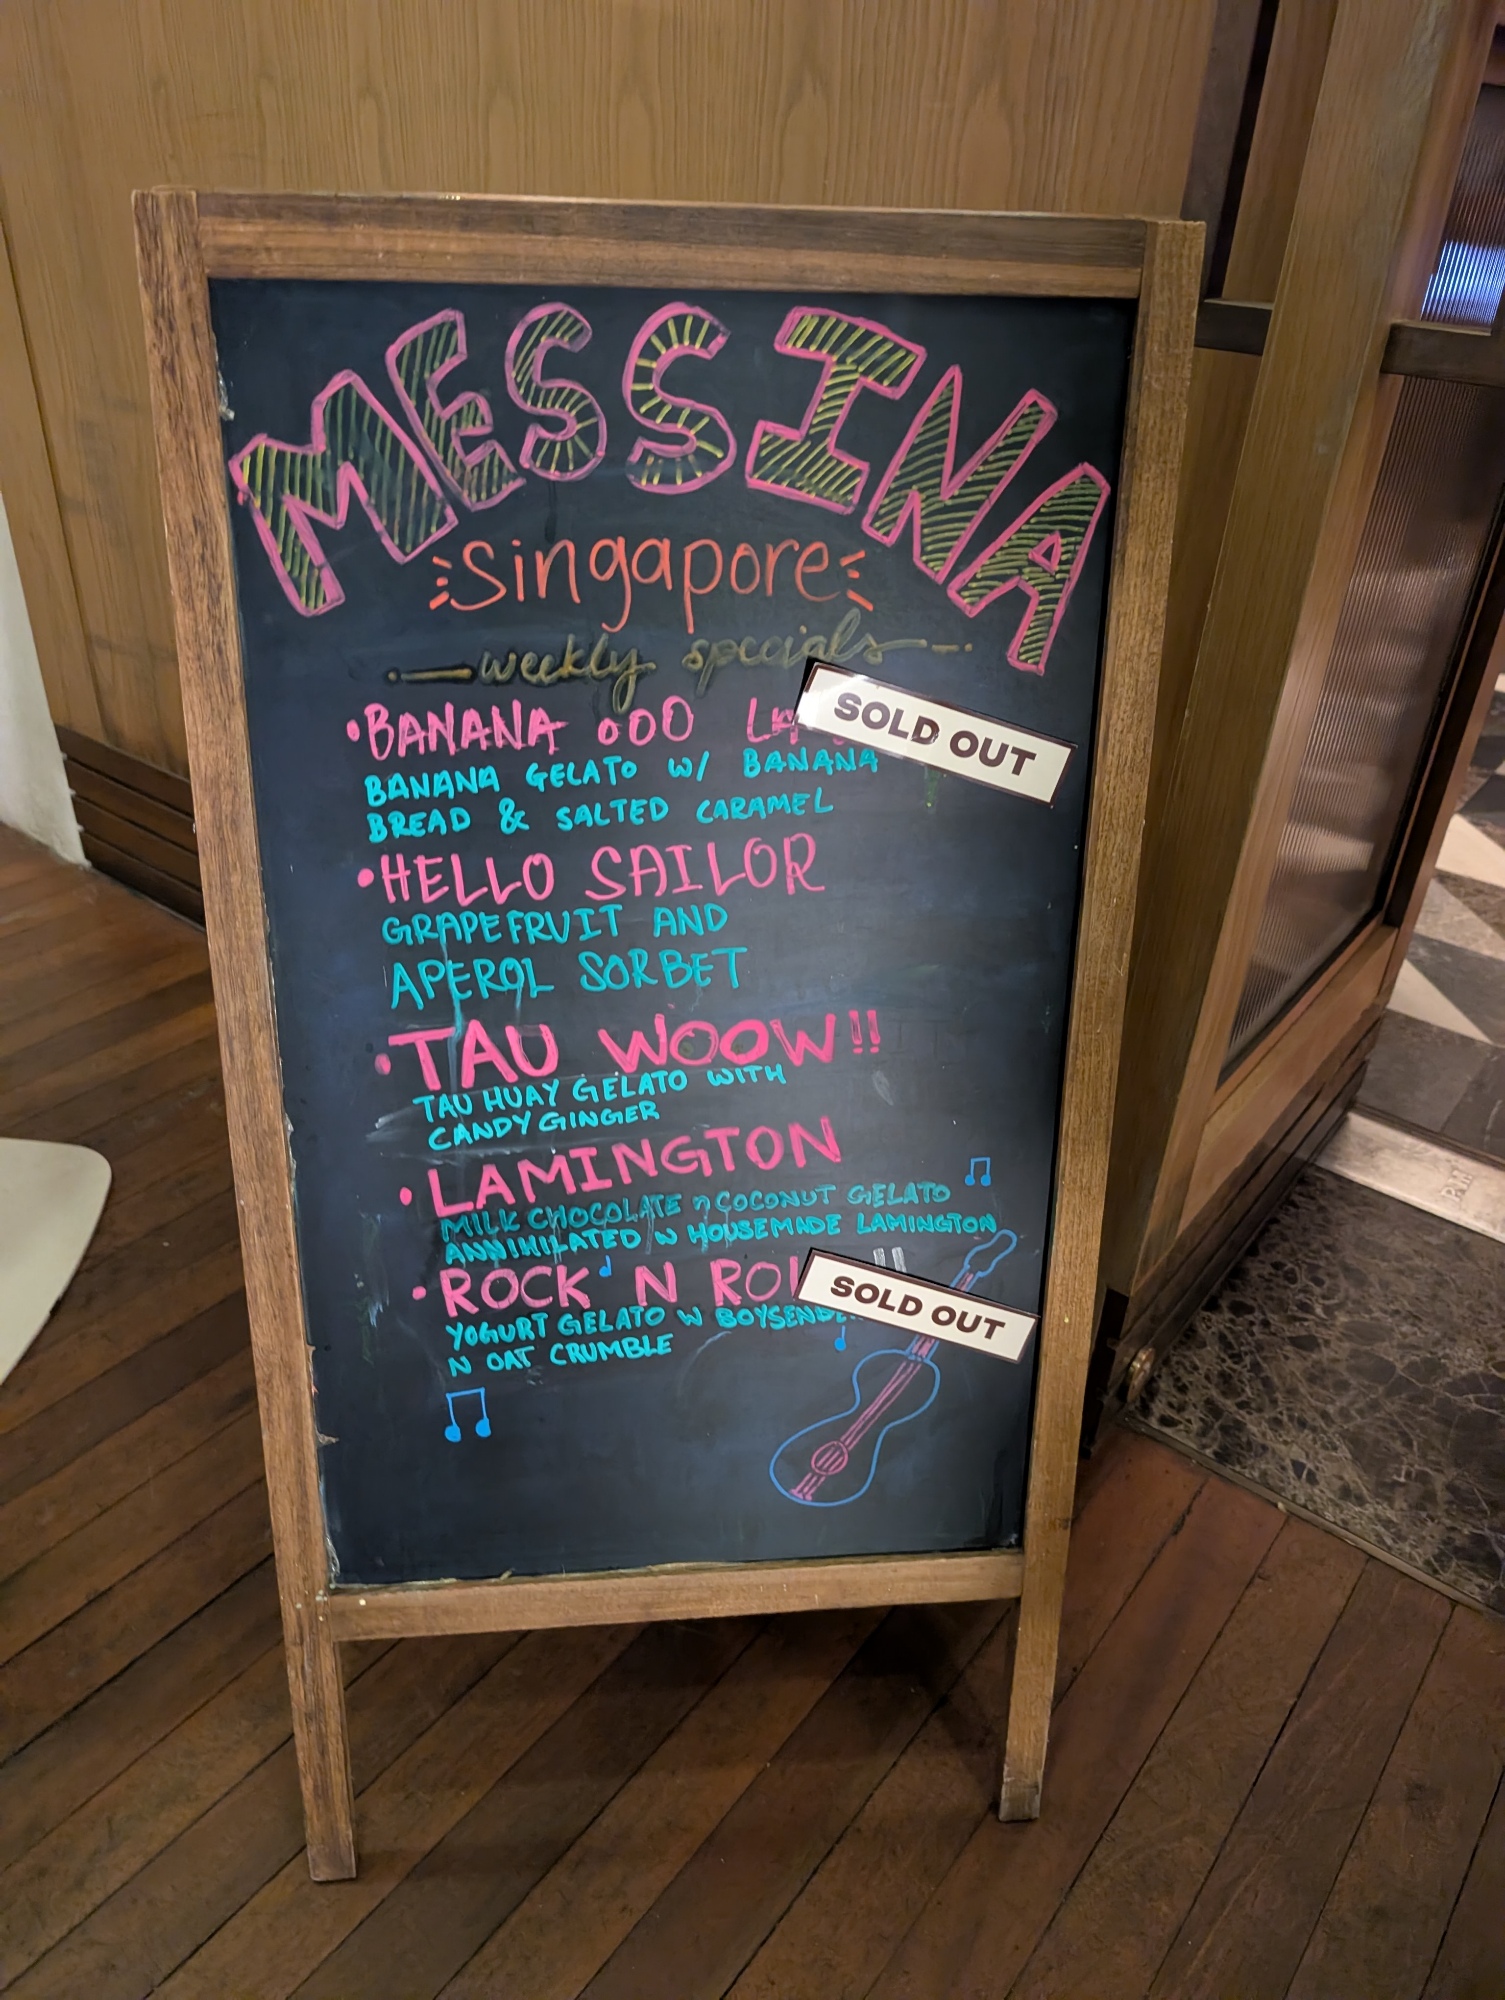 MESSINA
Singapore
weekly specials
• BANANA OOO
SOLD OUT
BANANA GELATO W/ BANANA
BREAD & SALTED CARAMEL
• HELLO SAILOR
GRAPEFRUIT AND
APEROL SORBET
• TAU WOOW!!
TAU HUAY GELATO WITH
CANDY GINGER
• LAMINGTON
MILK CHOCOLATE n COCONUT GELATO
ANNIHILATED W HOUSEMADE LAMINGTON
• ROCK N ROL !!
SOLD OUT
YOGURT GELATO W BOYSENBE
N OAT CRUMBLE